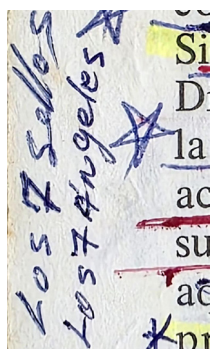 Los 7 Sellos
Los 7 Ángeles
Si
D
la
ac
su
ac
pr